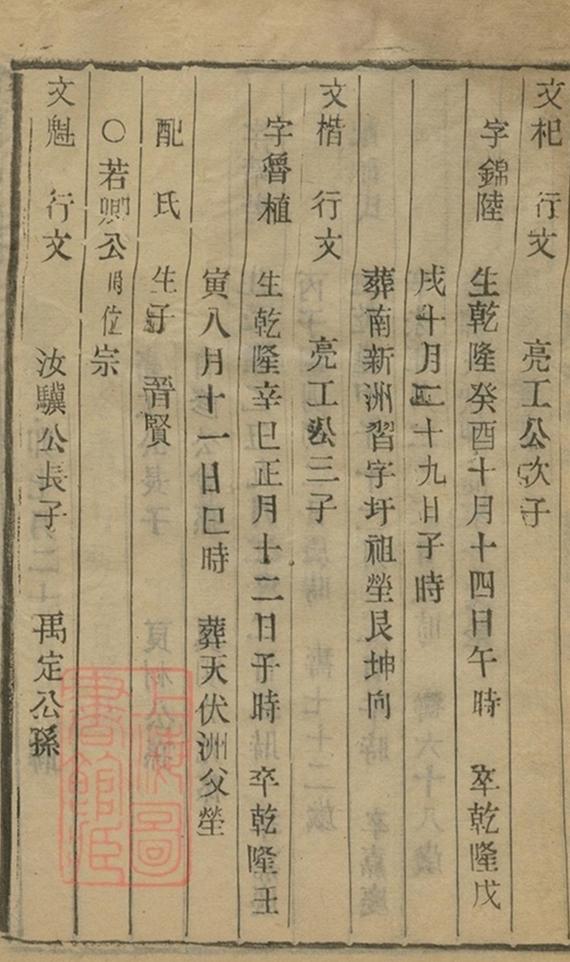 文杞 行文 亮工公次子
字錦陸 生乾隆癸酉十月十四日午時 卒乾隆戊
戌十月二十九日子時
葬南新洲習字圩祖塋艮坤向
文楷 行文 亮工公三子
字魯植 生乾隆辛巳正月十二日子時 卒乾隆壬
寅八月十一日巳時 葬天伏洲父塋
配氏 生子 晋賢
○若卿公 位宗
文魁 行文 汝驥公長子 禹定公孫
上海圖書館藏